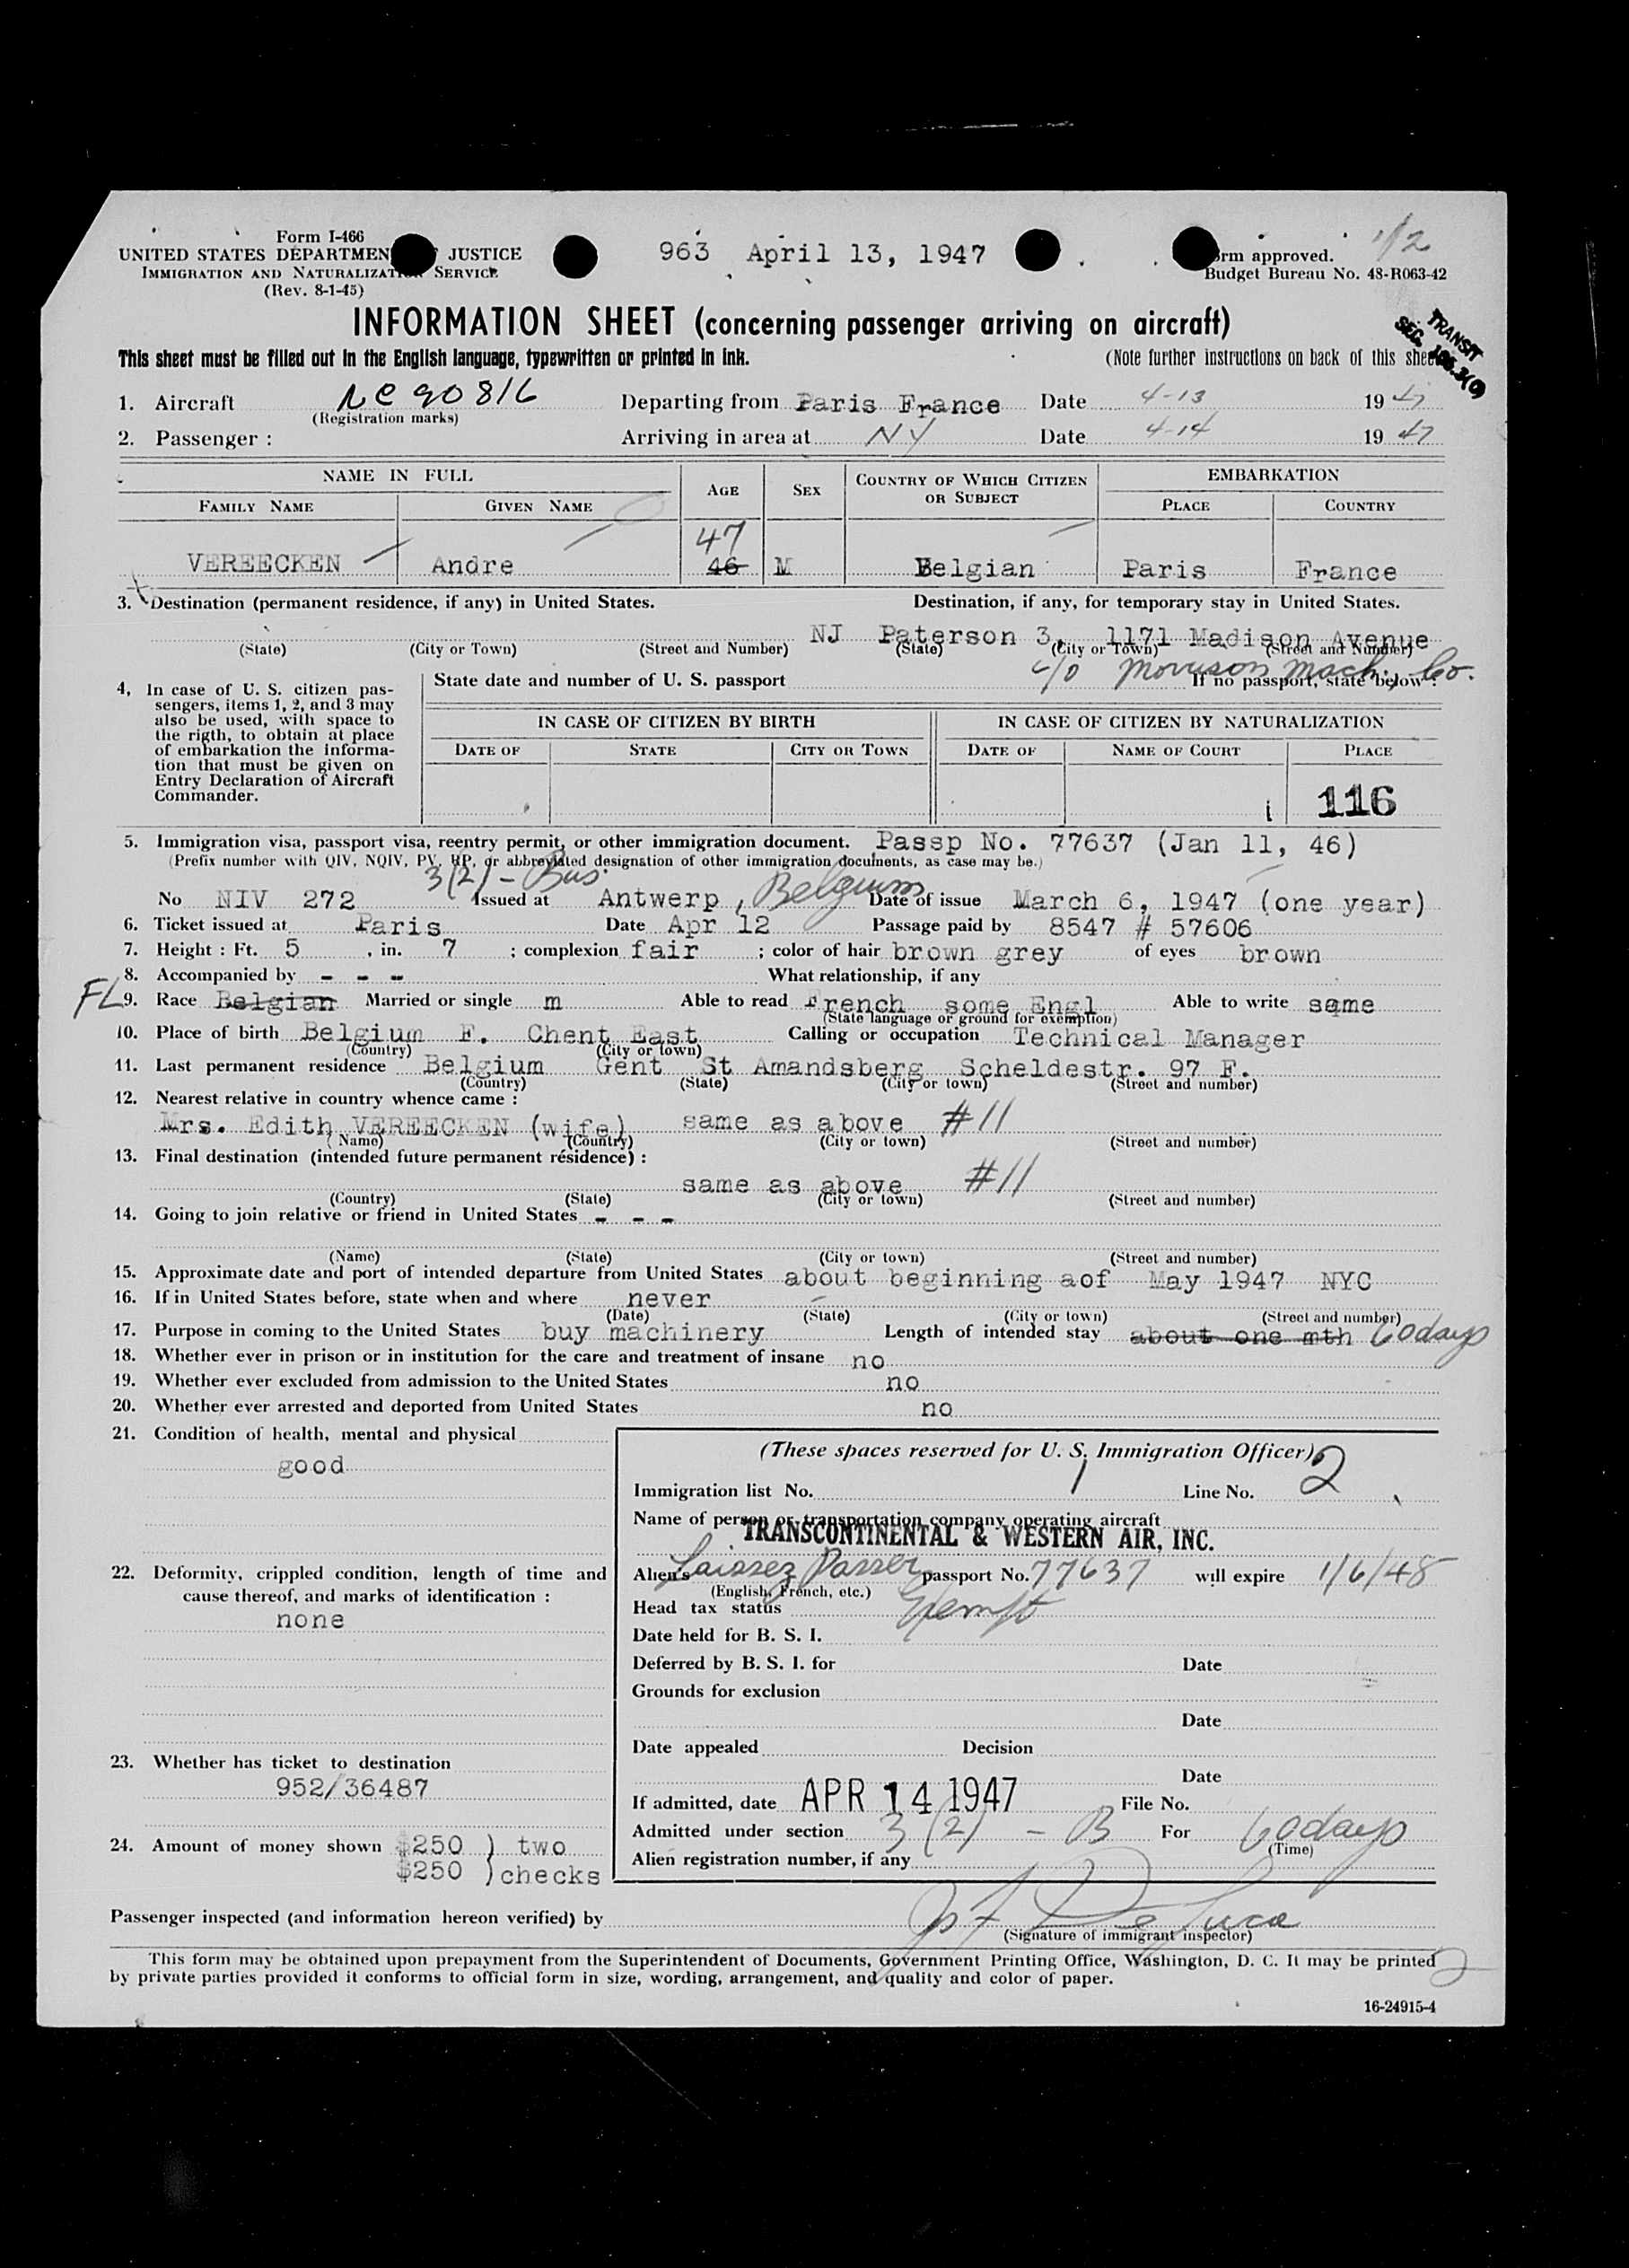 Form I-466
UNITED STATES DEPARTMEN JUSTICE
963 April 13, 1947
1/2
rm approved.
IMMIGRATION AND NATURALIZAT SERVICE
Budget Bureau No. 48-R063-42
(Rev. 8-1-45)
INFORMATION SHEET (concerning passenger arriving on aircraft)
TRANSIT
SEC.
This sheet must be filled out in the English language, typewritten or printed in ink.
(Note further instructions on back of this shee
1. Aircraft NC 90816 Departing from Paris France Date 4-13 1947
(Registration marks)
2. Passenger : Arriving in area at NY Date 4-14 1947
NAME IN FULL
AGE SEX COUNTRY OF WHICH CITIZEN OR SUBJECT EMBARKATION
FAMILY NAME GIVEN NAME PLACE COUNTRY
47
VEREECKEN Andre 46 M Belgian Paris France
3. Destination (permanent residence, if any) in United States. Destination, if any, for temporary stay in United States.
NJ Paterson 3, 1171 Madison Avenue
(State) (City or Town) (Street and Number) (State) (City or Town) (Street and Number)
c/o Morrison Mach. Co.
4, In case of U. S. citizen pas-
sengers, items 1, 2, and 3 may
also be used, with space to
the rigth, to obtain at place
of embarkation the informa-
tion that must be given on
Entry Declaration of Aircraft
Commander.
State date and number of U. S. passport If no passport, state below :
IN CASE OF CITIZEN BY BIRTH IN CASE OF CITIZEN BY NATURALIZATION
DATE OF STATE CITY OR TOWN DATE OF NAME OF COURT PLACE
116
5. Immigration visa, passport visa, reentry permit, or other immigration document. Passp No. 77637 (Jan 11, 46)
(Prefix number with QIV, NQIV, PV, RP, or abbreviated designation of other immigration documents, as case may be.)
3(2) - Bus.
No NIV 272 Issued at Antwerp, Belgium Date of issue March 6, 1947 (one year)
6. Ticket issued at Paris Date Apr 12 Passage paid by 8547 # 57606
7. Height : Ft. 5 , in. 7 ; complexion fair ; color of hair brown grey of eyes brown
8. Accompanied by - - - What relationship, if any
FL 9. Race Belgian Married or single m Able to read French some Engl Able to write same
(State language or ground for exemption)
10. Place of birth Belgium F. Chent East Calling or occupation Technical Manager
(Country) (City or town)
11. Last permanent residence Belgium Gent St Amandsberg Scheldestr. 97 F.
(Country) (State) (City or town) (Street and number)
12. Nearest relative in country whence came :
Mrs. Edith VEREECKEN (wife) same as above #11
(Name) (Country) (City or town) (Street and number)
13. Final destination (intended future permanent résidence) :
same as above #11
(Country) (State) (City or town) (Street and number)
14. Going to join relative or friend in United States - - -
(Name) (State) (City or town) (Street and number)
15. Approximate date and port of intended departure from United States about beginning aof May 1947 NYC
16. If in United States before, state when and where never
(Date) (State) (City or town) (Street and number)
17. Purpose in coming to the United States buy machinery Length of intended stay about one mth 60days
18. Whether ever in prison or in institution for the care and treatment of insane no
19. Whether ever excluded from admission to the United States no
20. Whether ever arrested and deported from United States no
21. Condition of health, mental and physical
good
22. Deformity, crippled condition, length of time and
cause thereof, and marks of identification :
none
23. Whether has ticket to destination
952/36487
24. Amount of money shown $250 ) two
$250 ) checks
(These spaces reserved for U. S. Immigration Officer)
Immigration list No. 1 Line No. 2
Name of person or transportation company operating aircraft
TRANSCONTINENTAL & WESTERN AIR, INC.
Alien's Laissez Passer passport No. 77637 will expire 1/6/48
(English, French, etc.)
Head tax status Exempt
Date held for B. S. I.
Deferred by B. S. I. for Date
Grounds for exclusion
Date
Date appealed Decision
Date
If admitted, date APR 14 1947 File No.
Admitted under section 3(2) - B For 60days
(Time)
Alien registration number, if any
Passenger inspected (and information hereon verified) by De Luca
(Signature of immigrant inspector)
This form may be obtained upon prepayment from the Superintendent of Documents, Government Printing Office, Washington, D. C. It may be printed
by private parties provided it conforms to official form in size, wording, arrangement, and quality and color of paper.
2
16-24915-4